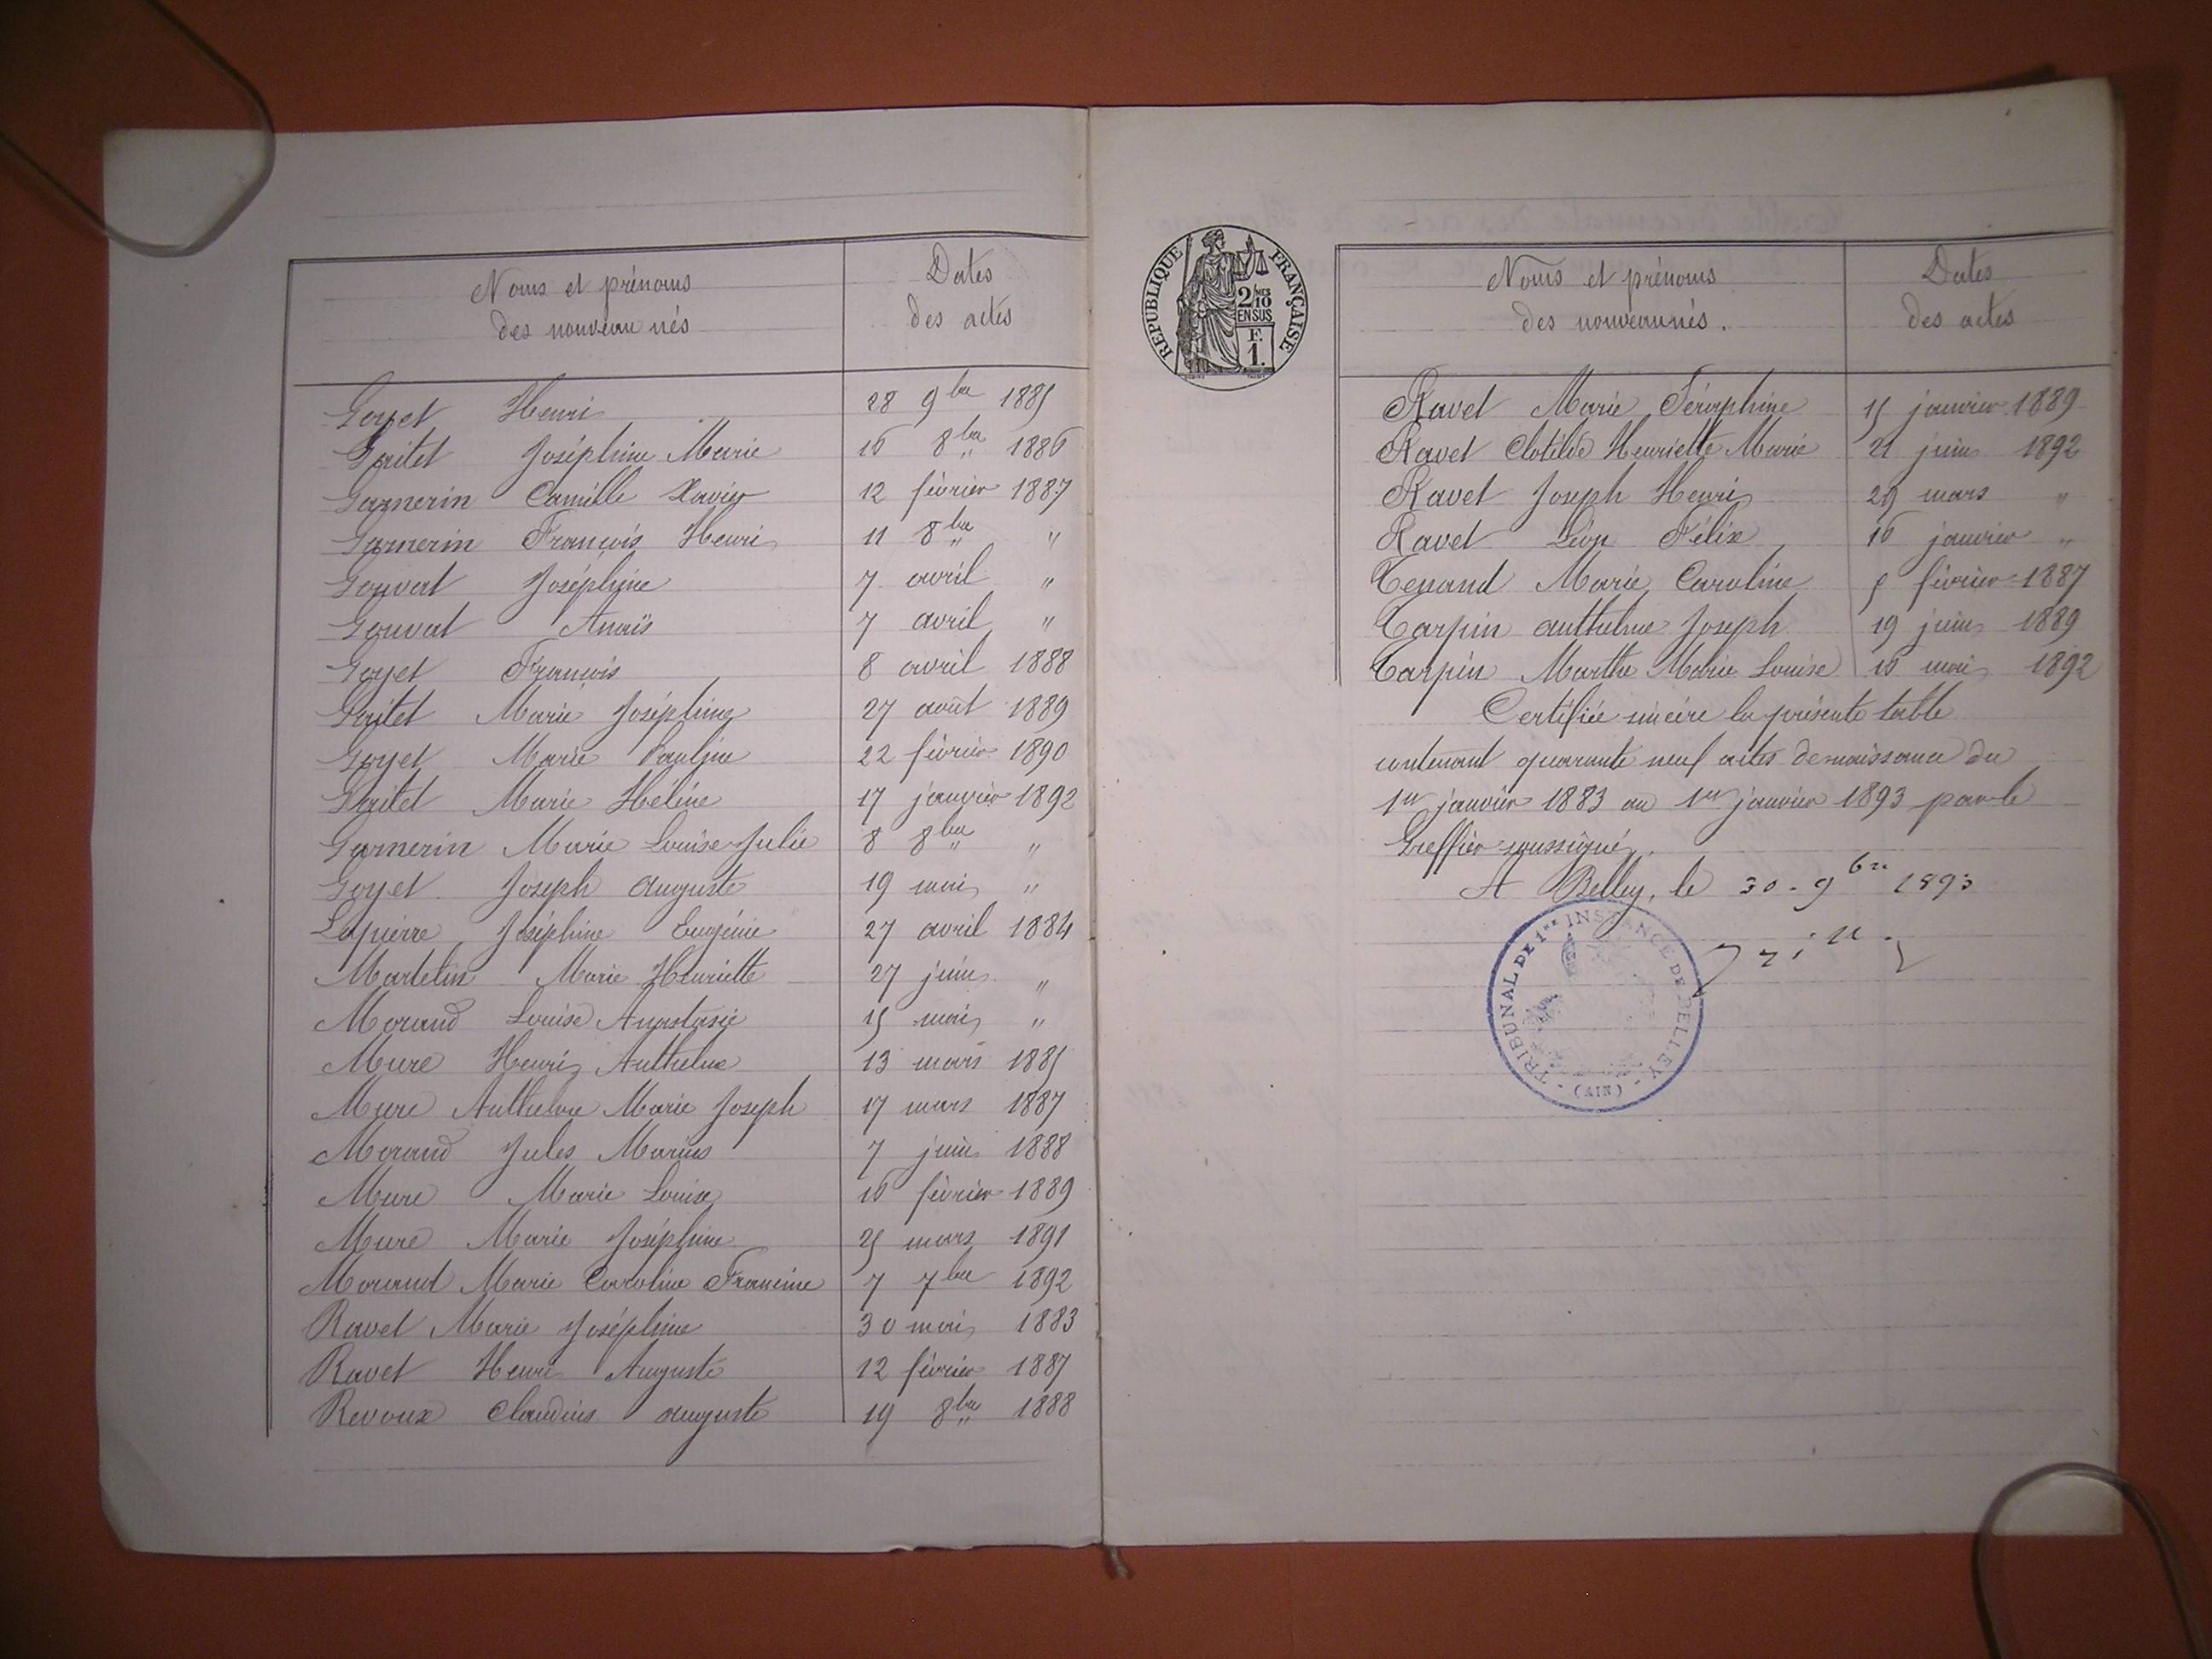 Noms et prénoms
des nouveau nés
Dates
des actes
Goyet Henri 28 9bre 1885
Goitet Joséphine Marie 16 8bre 1886
Garnerin Camille Xavier 12 février 1887
Garnerin François Henri 11 8bre "
Gouvat Joséphine 7 avril "
Gouvat Anaïs 7 avril "
Goyet François 8 avril 1888
Goitet Marie Joséphine 27 août 1889
Goyet Marie Pauline 22 février 1890
Goitet Marie Hélène 17 janvier 1892
Garnerin Marie Louise Julie 8 8bre "
Goyet Joseph Auguste 19 mai "
Lapierre Joséphine Eugénie 27 avril 1884
Martelin Marie Henriette 27 juin "
Morand Louise Anastasie 15 mai "
Mure Henri Anthelme 13 mars 1885
Mure Anthelme Marie Joseph 17 mars 1887
Morand Jules Marius 7 juin 1888
Mure Marie Louise 16 février 1889
Mure Marie Joséphine 25 mars 1891
Morand Marie Caroline Francine 7 7bre 1892
Ravet Marie Joséphine 30 mai 1883
Ravet Henri Auguste 12 février 1887
Revoux Claudius Auguste 19 8bre 1888
RÉPUBLIQUE FRANÇAISE
2/10 MES
EN SUS
F.
1.
Noms et prénoms
des nouveau nés.
Dates
des actes
Ravet Marie Séraphine 15 janvier 1889
Ravet Clotilde Henriette Marie 21 juin 1892
Ravet Joseph Henri 29 mars "
Ravet Léon Félix 16 janvier "
Tenand Marie Caroline 5 février 1887
Carpin Anthelme Joseph 19 juin 1889
Carpin Marthe Marie Louise 16 mai 1892
Certifiée sincère la présente table
contenant quarante neuf actes de naissance du
1er janvier 1883 au 1er janvier 1893 par le
Greffier soussigné.
A Belley, le 30 - 9bre 1893
TRIBUNAL DE 1re INSTANCE DE BELLEY
(AIN)